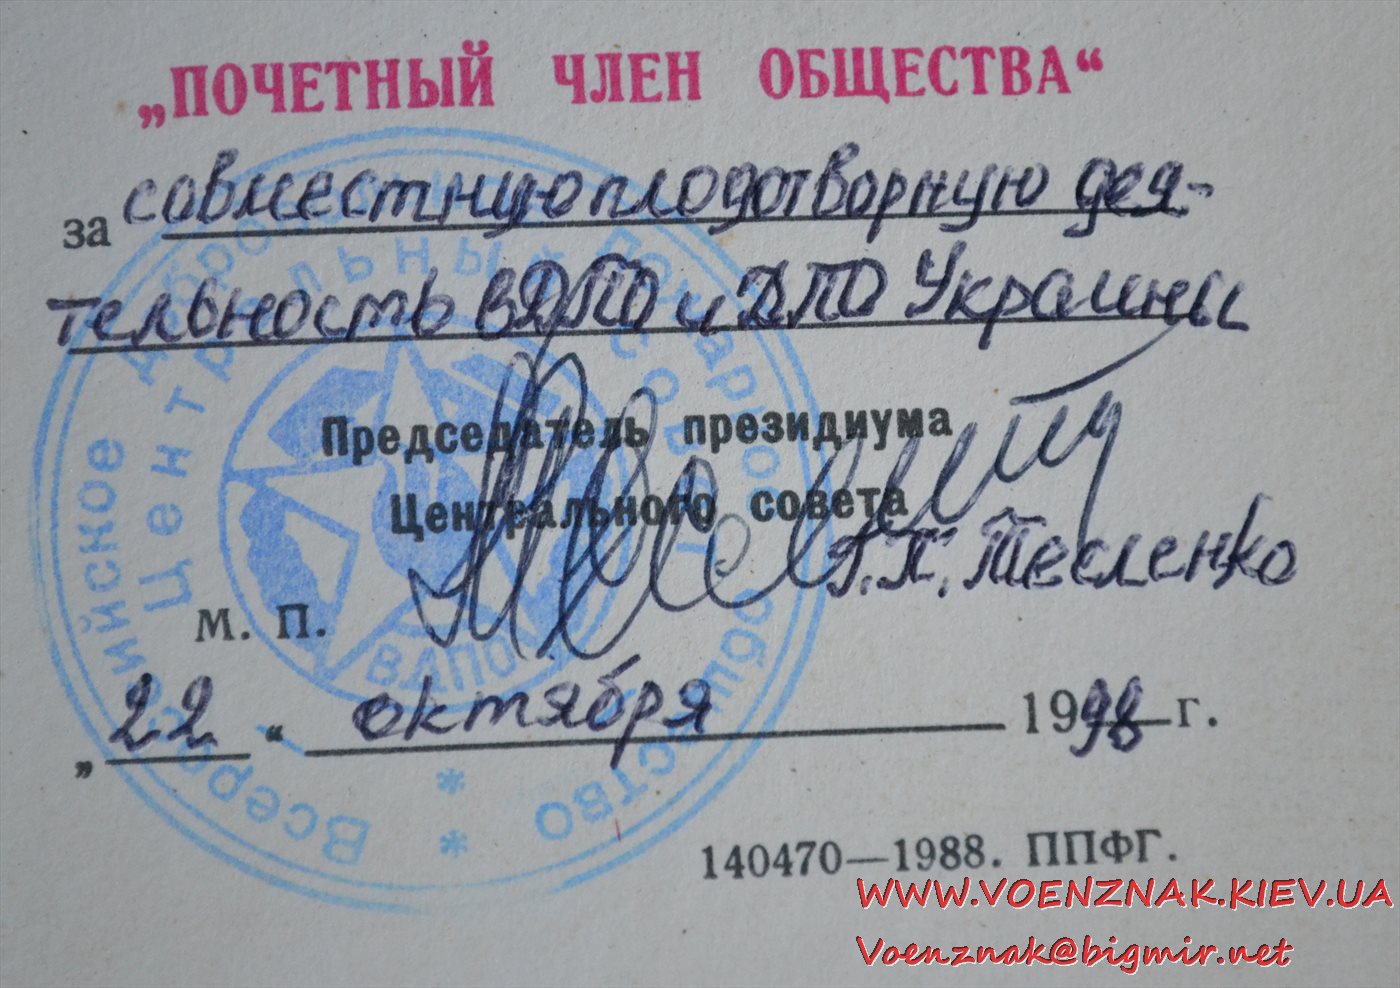 „ПОЧЕТНЫЙ ЧЛЕН ОБЩЕСТВА“
за совместную плодотворную дея-
тельность ВДПО и ДПО Украины
Председатель президиума
Центрального совета
Г.Х. Тесленко
М. П.
„22“ октября 1998 г.
Всероссийское добровольное пожарное общество
Центральный совет
ВДПО
140470—1988. ППФГ.
WWW.VOENZNAK.KIEV.UA
Voenznak@bigmir.net